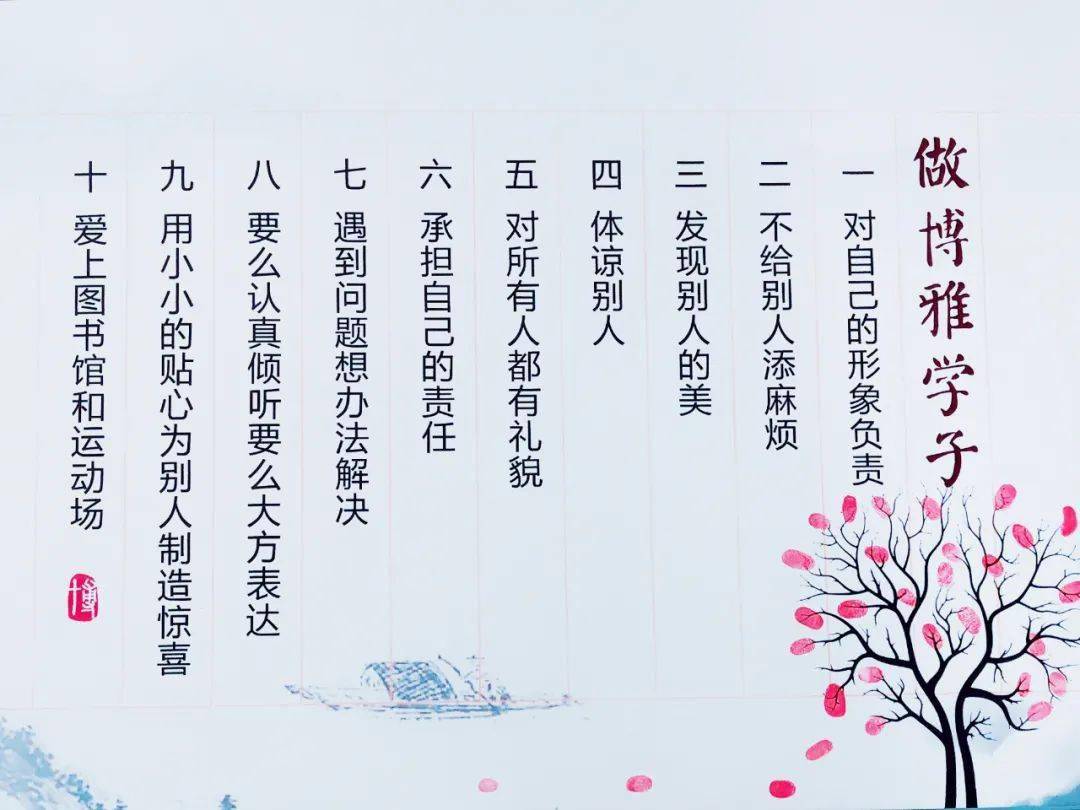 做博雅学子
一 对自己的形象负责
二 不给别人添麻烦
三 发现别人的美
四 体谅别人
五 对所有人都有礼貌
六 承担自己的责任
七 遇到问题想办法解决
八 要么认真倾听要么大方表达
九 用小小的贴心为别人制造惊喜
十 爱上图书馆和运动场
博